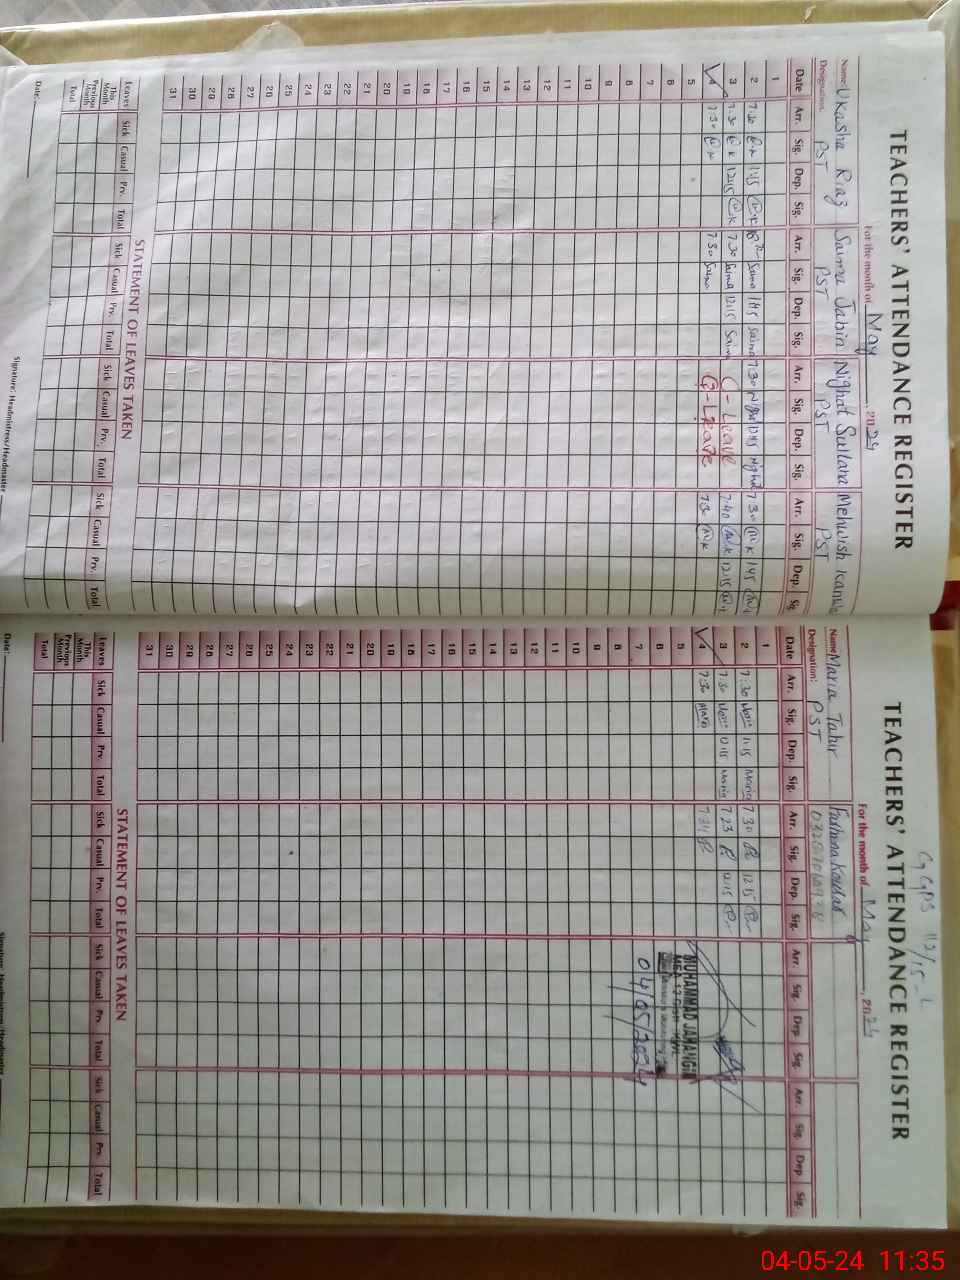 TEACHERS' ATTENDANCE REGISTER
For the month of May, 2024
Name: Ukasha Riaz Saima Jabin Nighat Sultana Mehwish Kanwal
Designation: PST PST PST PST
Date Arr. Sig. Dep. Sig. Arr. Sig. Dep. Sig. Arr. Sig. Dep. Sig. Arr. Sig. Dep. Sig.
1
2 7.30 1:45 Saima 1:45 Saima 7.30 Nighat Nighat 7.30 1:45
3 7.30 12:15 7.30 Saima 12:15 Saima Leave 7.40 12:15
4 7.30 7.30 Saima - Leave 7.30
5
6
7
8
9
10
11
12
13
14
15
16
17
18
19
20
21
22
23
24
25
26
27
28
29
30
31
STATEMENT OF LEAVES TAKEN
Leaves Sick Casual Prv. Total Sick Casual Prv. Total Sick Casual Prv. Total Sick Casual Prv. Total
This Month
Previous Month
Total
Date:
Signature: Headmistress/Headmaster
TEACHERS' ATTENDANCE REGISTER
For the month of May, 2024
Name: Maria Tahir
Designation: PST
Date Arr. Sig. Dep. Sig. Arr. Sig. Dep. Sig. Arr. Sig. Dep. Sig. Arr. Sig. Dep. Sig.
1
2 7:30 Maria Maria 7.30 12:15
3 7:30 Maria 12:15 Maria 7.23 12:15
4 7:30 Maria
5
6
7
8
9
10
11
12
13
14
15
16
17
18
19
20
21
22
23
24
25
26
27
28
29
30
31
MUHAMMAD JAHANGIR
04/05/2024
STATEMENT OF LEAVES TAKEN
Leaves Sick Casual Prv. Total Sick Casual Prv. Total Sick Casual Prv. Total Sick Casual Prv. Total
This Month
Previous Month
Total
Date:
Signature: Headmistress/Headmaster
04-05-24 11:35